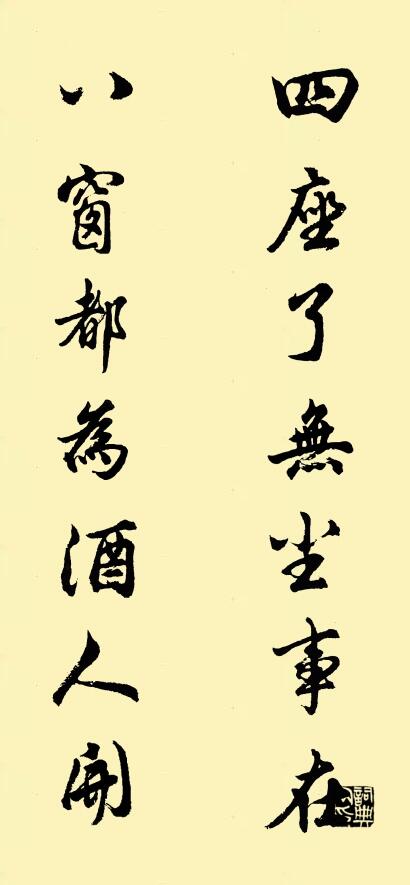 四座了無尘事在
八窗都為酒人開
詞典